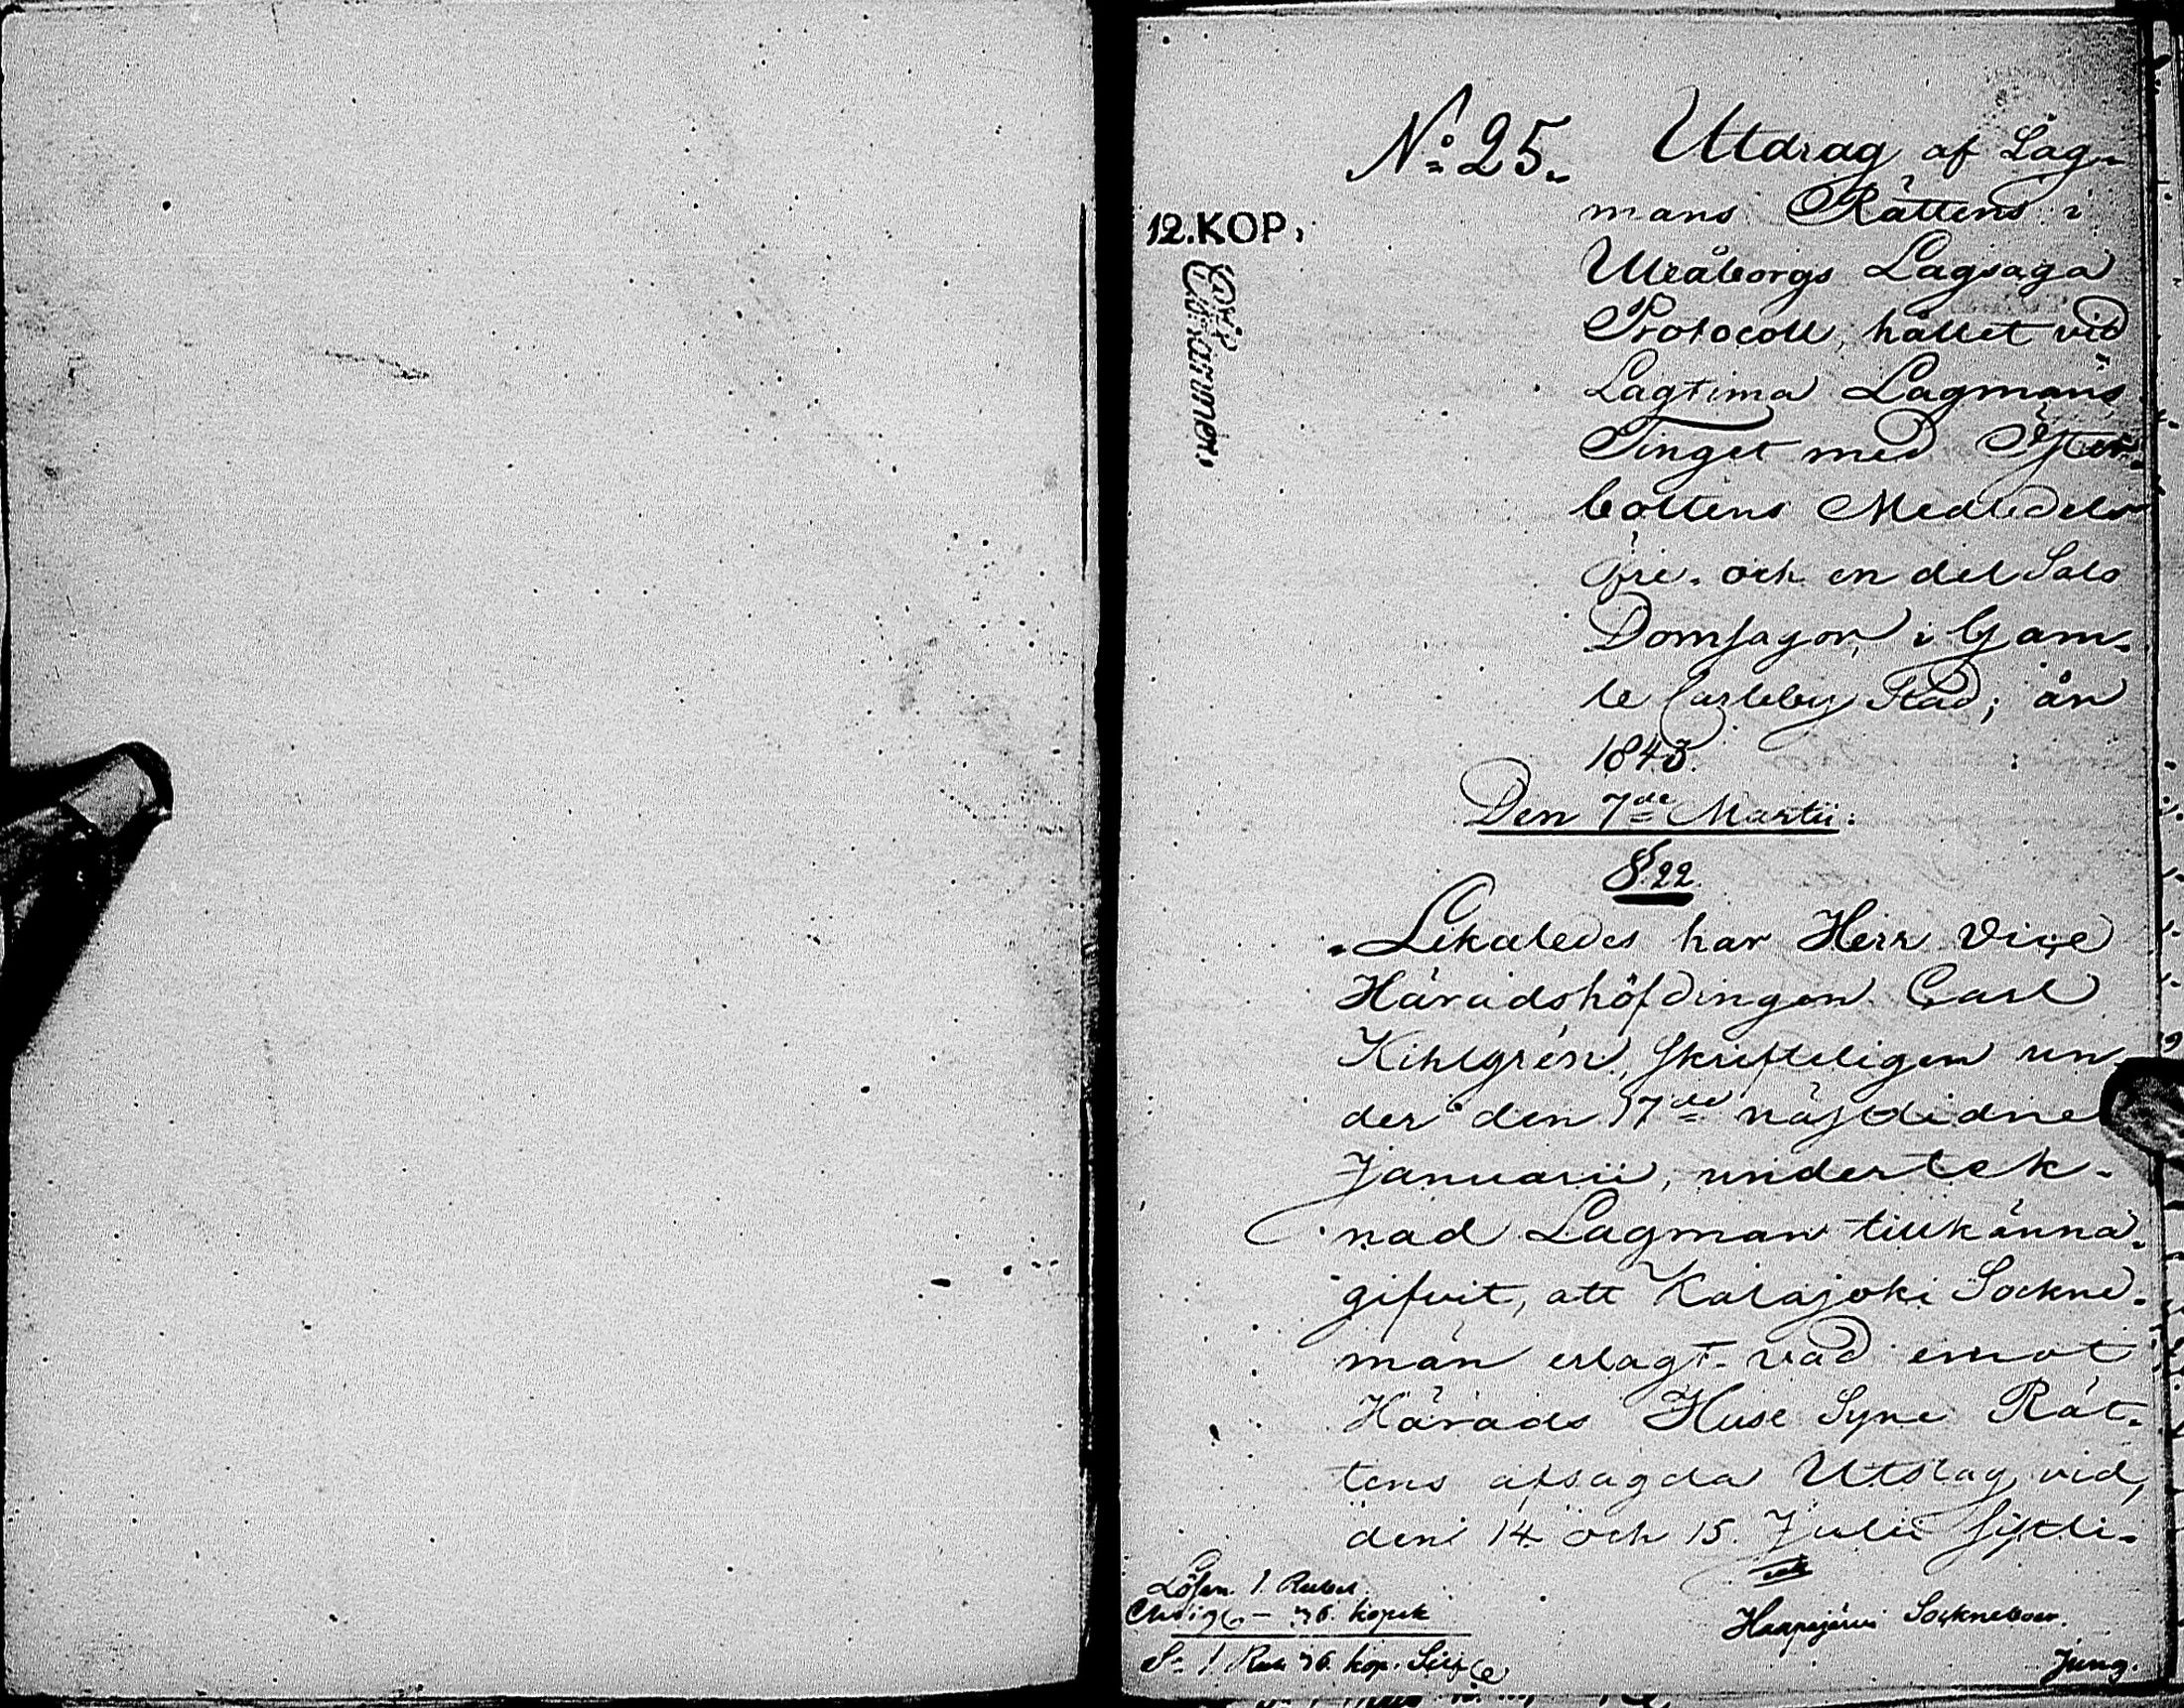 No 25. Utdrag af Lag-
mans Rättens i
12. KOP.
Uleåborgs Lagsaga
Protocoll, hållet vid
Lagtima Lagmans
Tinget med Öster-
bottens Medledels
öfre- och en del Salo
Domsagor, i Gam-
le Carleby Stad; år
1843.
Den 7de Martii.
§. 22.
Likaledes har Herr Vice
Häradshöfdingen Carl
Kihlgrén, skrifteligen un
der den 17de nästlidne
Januarii, underteck-
nad Lagman tillkänna-
gifvit, att Kalajoki Sockne-
män erlagt vad emot
Härads Huse Syne Rät-
tens afsagda Utslag vid,
den 14 och 15. Julii sistli-
Lösen 1. Rubel.
36. kopek
S:a 1 Rub 36. kop. Silf
Haapajärvi Sockneboer.